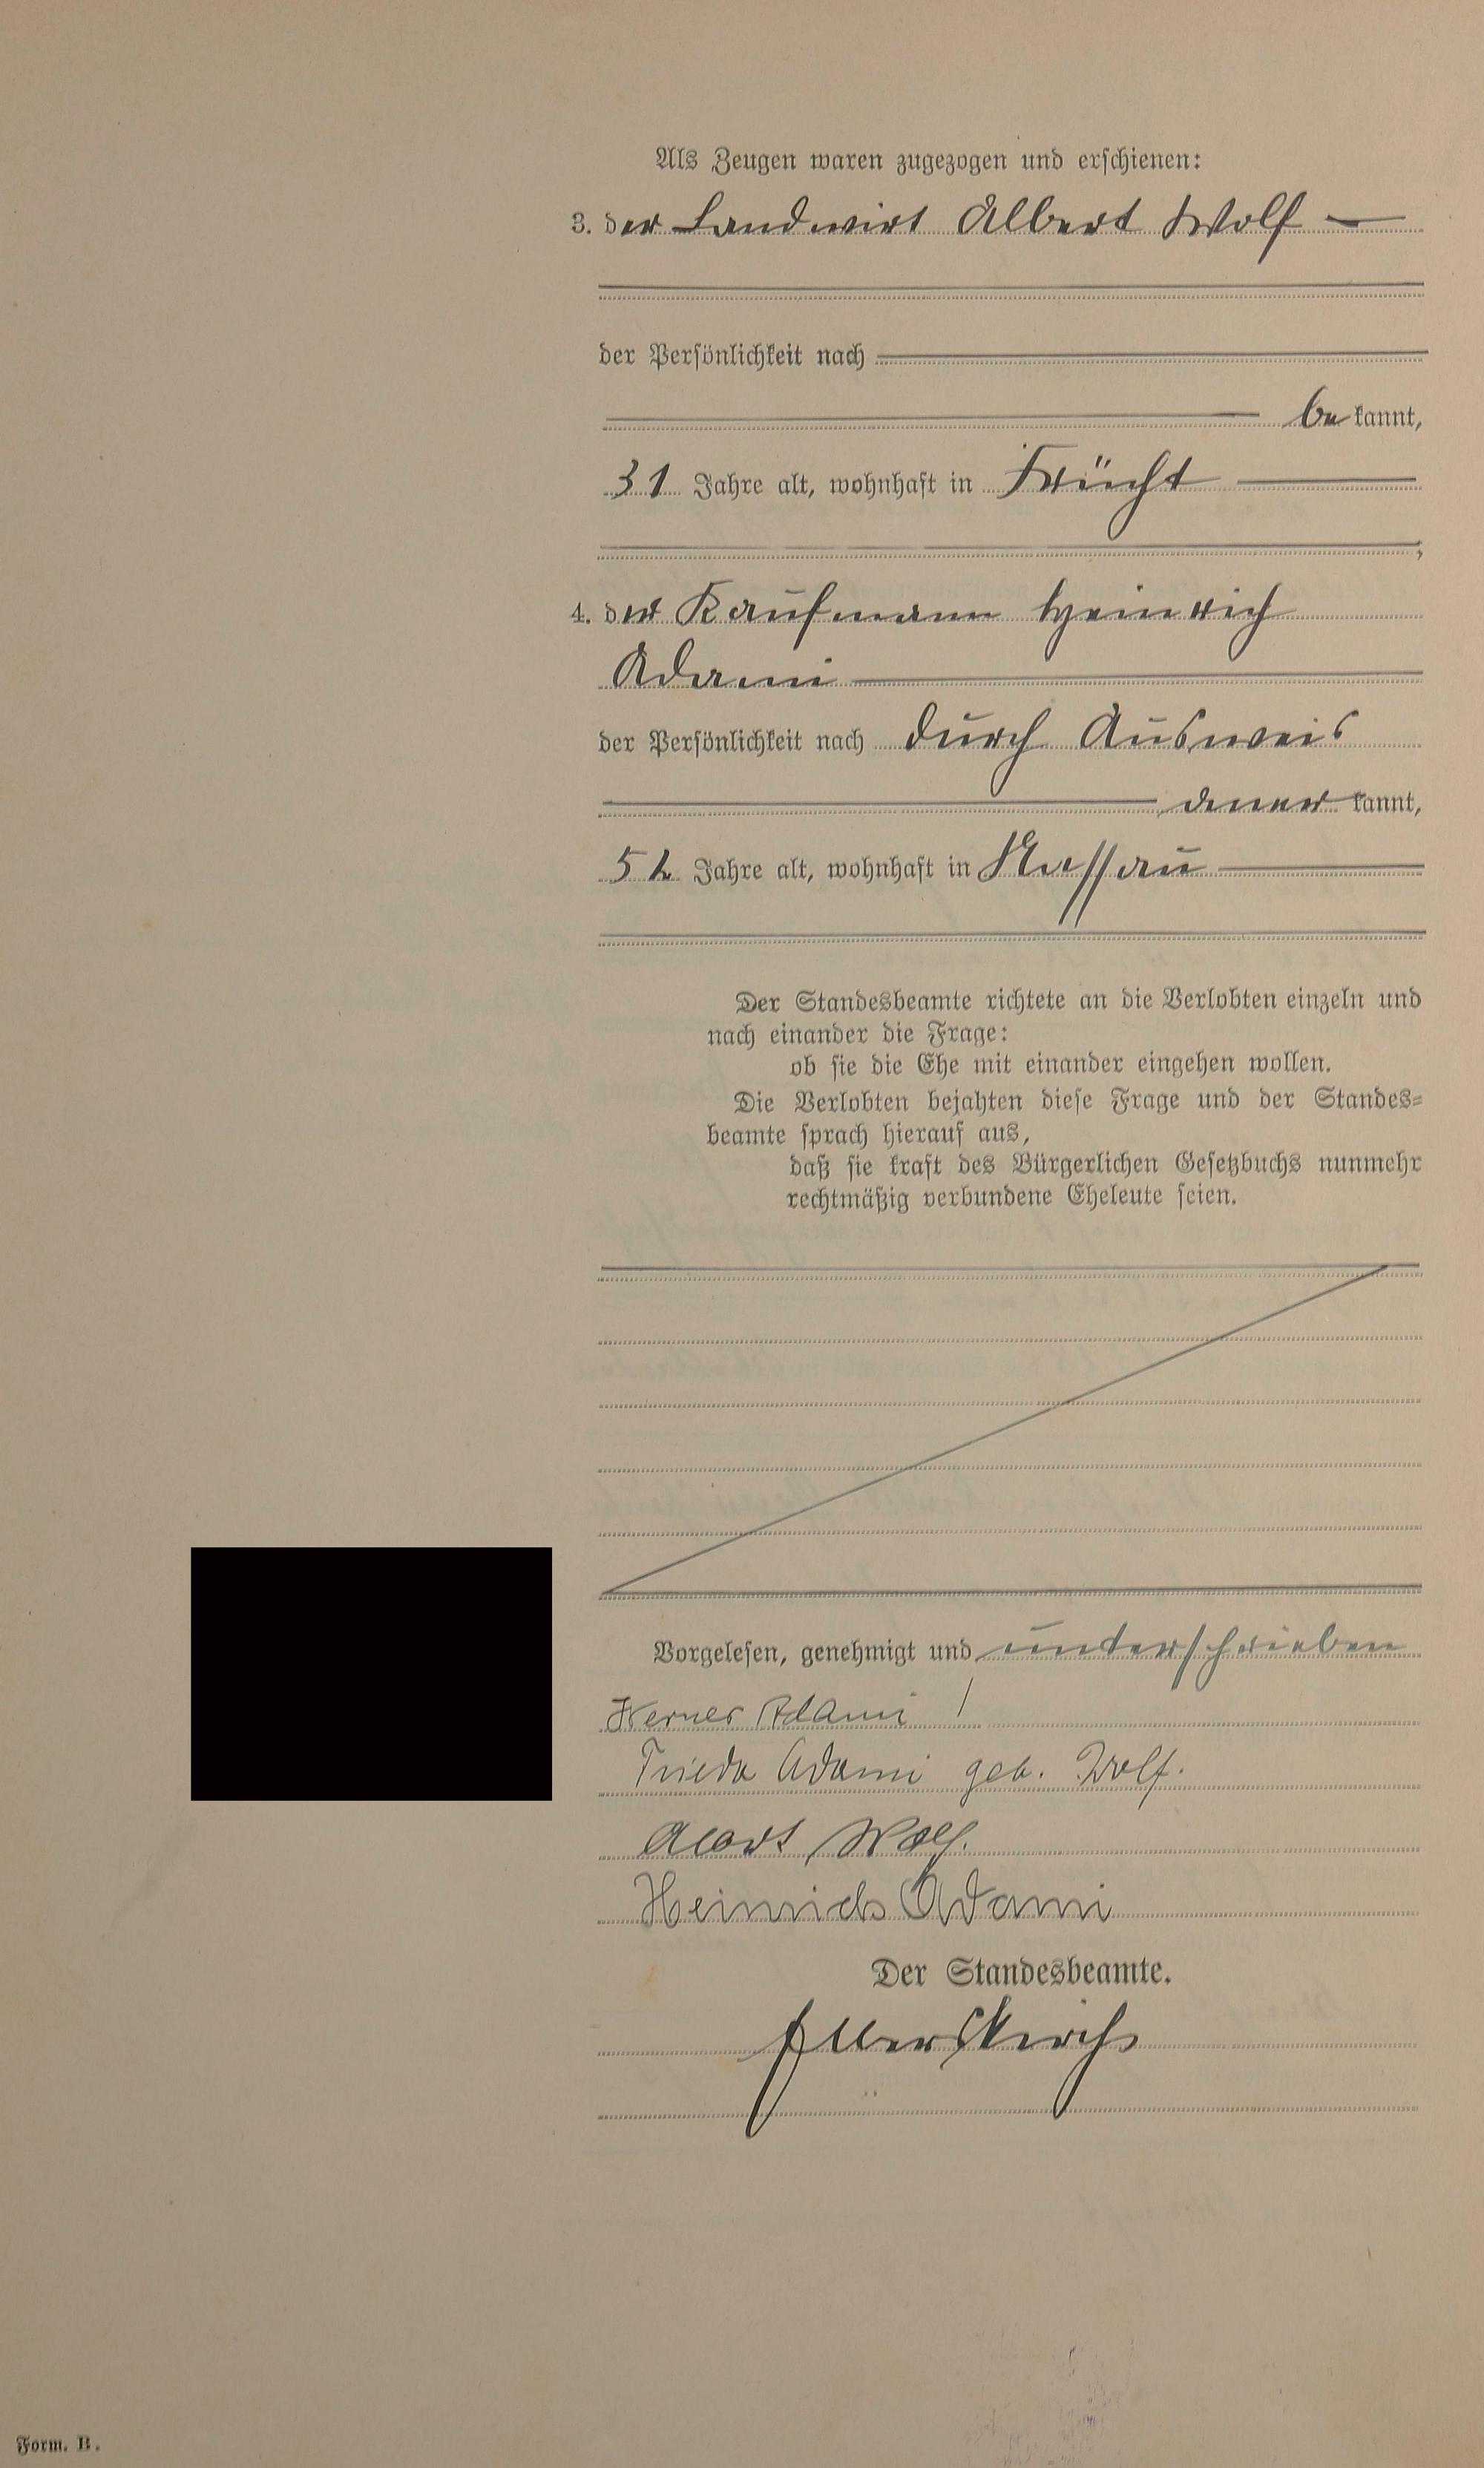 Als Zeugen waren zugezogen und erschienen:
3. der Landwirt Albert Wolf
der Persönlichkeit nach
bekannt,
31 Jahre alt, wohnhaft in Frücht
;
4. der Kaufmann Heinrich
Adami
der Persönlichkeit nach durch Ausweis
anerkannt,
52 Jahre alt, wohnhaft in Nassau
Der Standesbeamte richtete an die Verlobten einzeln und
nach einander die Frage:
ob sie die Ehe mit einander eingehen wollen.
Die Verlobten bejahten diese Frage und der Standes-
beamte sprach hierauf aus,
daß sie kraft des Bürgerlichen Gesetzbuchs nunmehr
rechtmäßig verbundene Eheleute seien.
Vorgelesen, genehmigt und unterschrieben
Werner Adami
Frieda Adami geb. Wolf.
Albert Wolf.
Heinrich Adami
Der Standesbeamte.
Form. B.